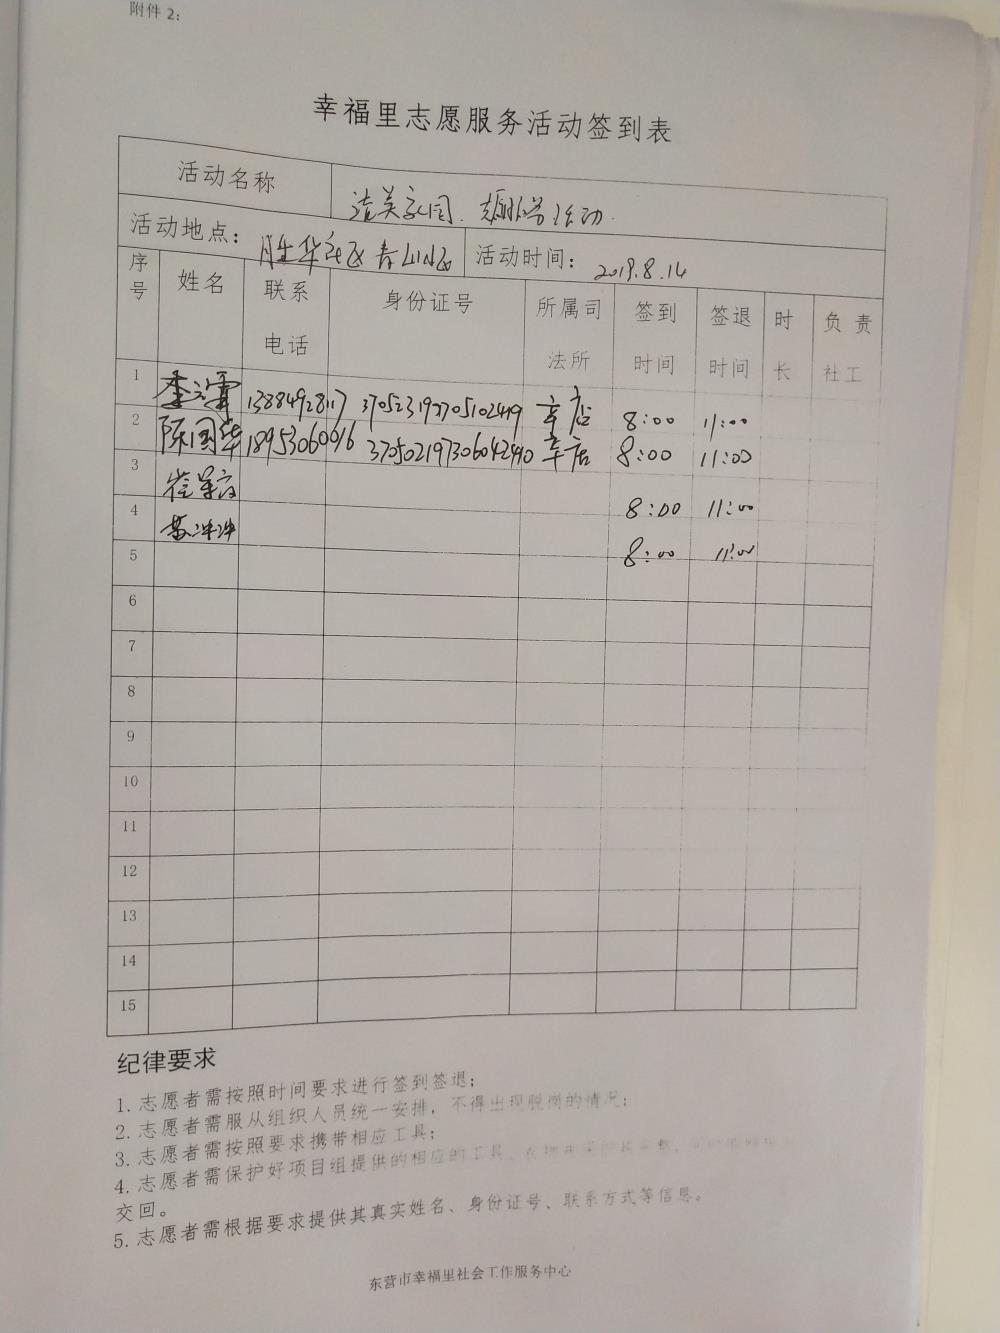 附件 2：
幸福里志愿服务活动签到表
活动名称 洁美家园、志愿服务活动
活动地点： 胜华社区 活动时间： 2019.8.14
序号 姓名 联系电话 身份证号 所属司法所 签到时间 签退时间 时长 负责社工
1 李 13884928117 辛店 8:00 11:00
2 陈国华 18953060016 辛店 8:00 11:00
3 8:00 11:00
4 苏冲冲 8:00 11:00
5
6
7
8
9
10
11
12
13
14
15
纪律要求
1. 志愿者需按照时间要求进行签到签退；
2. 志愿者需服从组织人员统一安排，不得出现脱岗的情况；
3. 志愿者需按照要求携带相应工具；
4. 志愿者需保护好项目组提供的相应的工具、
交回。
5. 志愿者需根据要求提供其真实姓名、身份证号、联系方式等信息。
东营市幸福里社会工作服务中心